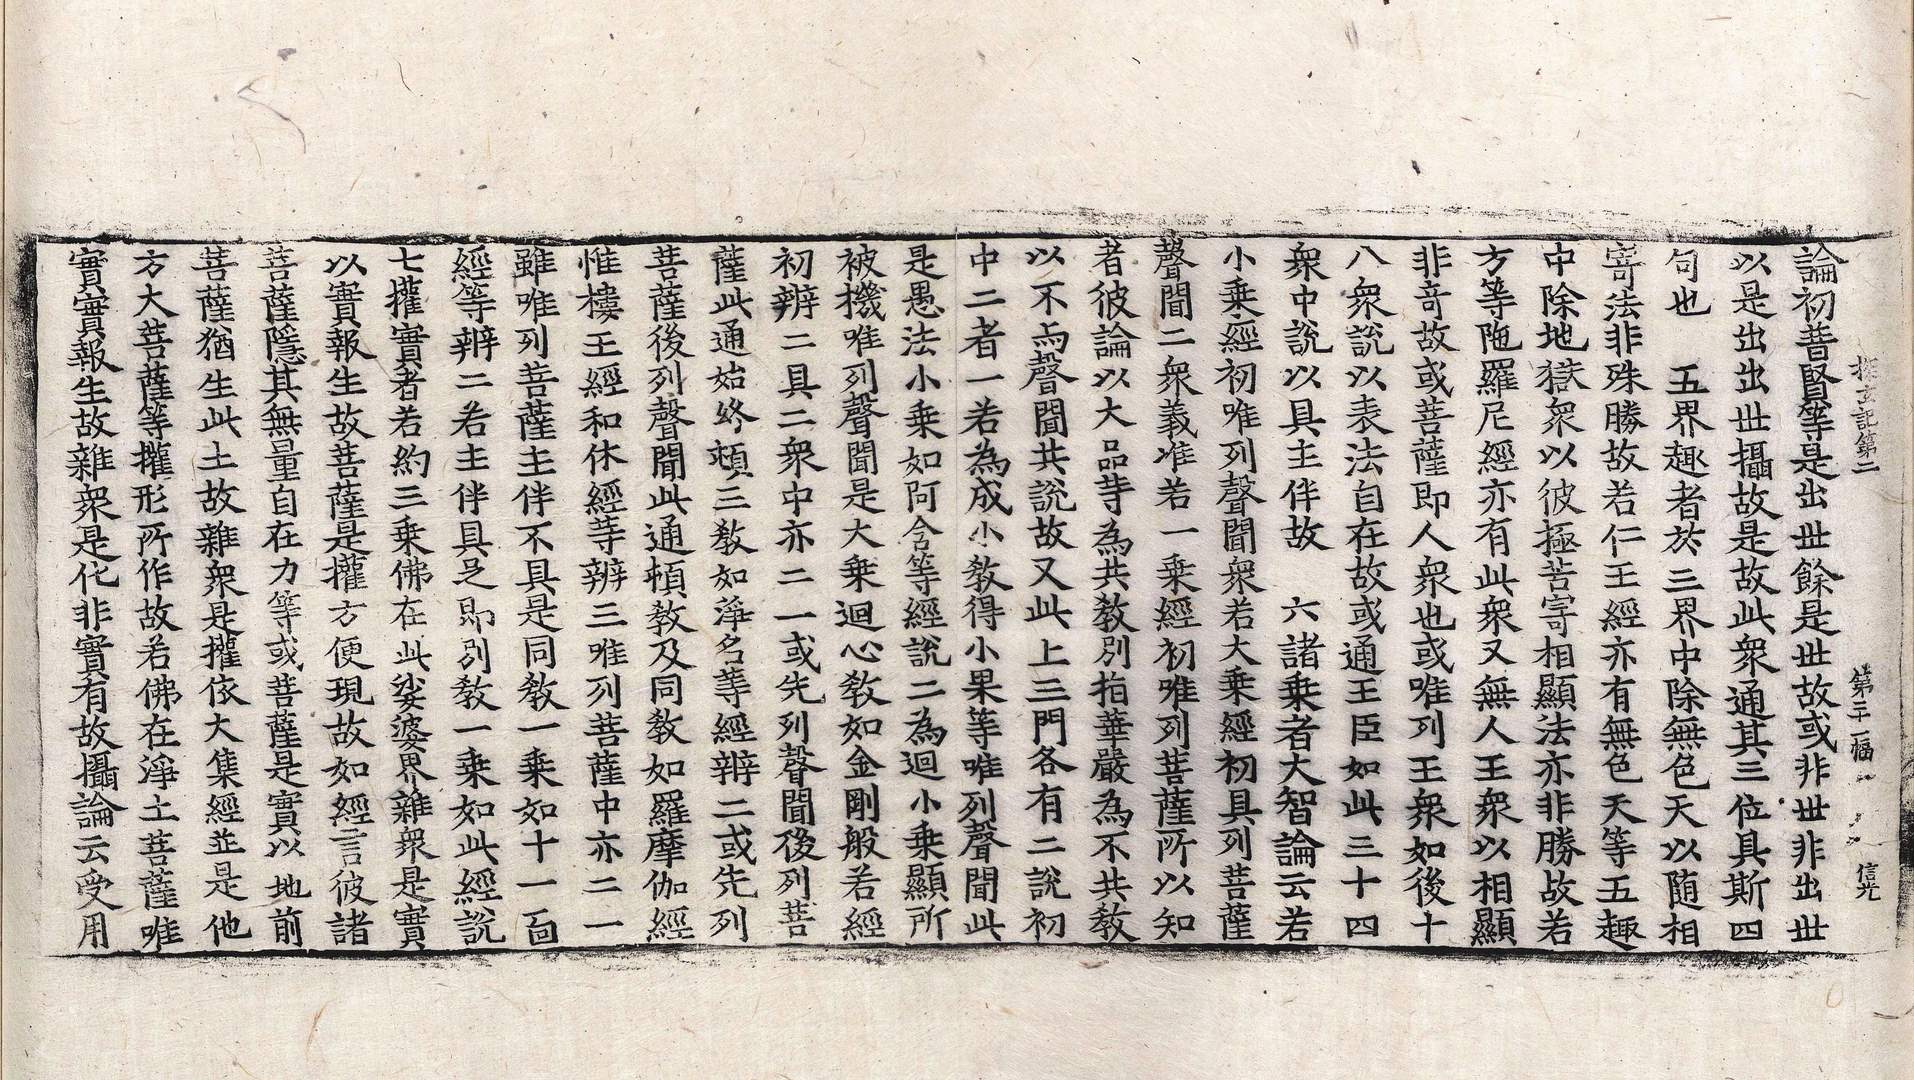 探玄記第二　第三十一幅　信光
論初普賢等是出世餘是世故或非世非出世
以是出出世攝故是故此衆通其三位具斯四
句也　五界趣者於三界中除無色天以随相
寄法非殊勝故若仁王經亦有無色天等五趣
中除地獄衆以彼極苦寄相顯法亦非勝故若
方等陁羅尼經亦有此衆又無人王衆以相顯
非竒故或菩薩即人衆也或唯列王衆如後十
八衆說以表法自在故或通王臣如此三十四
衆中說以具主伴故　六諸乗者大智論云若
小乗經初唯列聲聞衆若大乗經初具列菩薩
聲聞二衆義准若一乗經初唯列菩薩所以知
者彼論以大品等為共教別指華嚴為不共教
以不與聲聞共說故又此上三門各有二說初
中二者一若為成小教得小果等唯列聲聞此
是愚法小乗如阿含等經說二為迴小乗顯所
被機唯列聲聞是大乗迴心教如金剛般若經
初辨二具二衆中亦二一或先列聲聞後列菩
薩此通始終頓三教如淨名等經辨二或先列
菩薩後列聲聞此通頓教及同教如羅摩伽經
惟樓王經和休經等辨三唯列菩薩中亦二一
雖唯列菩薩主伴不具是同教一乗如十一面
經等辨二若主伴具足即別教一乗如此經說
七權實者若約三乗佛在此娑婆界雜衆是實
以實報生故菩薩是權方便現故如經言彼諸
菩薩隱其無量自在力等或菩薩是實以地前
菩薩猶生此土故雜衆是權依大集經並是他
方大菩薩等權形所作故若佛在淨土菩薩唯
實實報生故雜衆是化非實有故攝論云受用